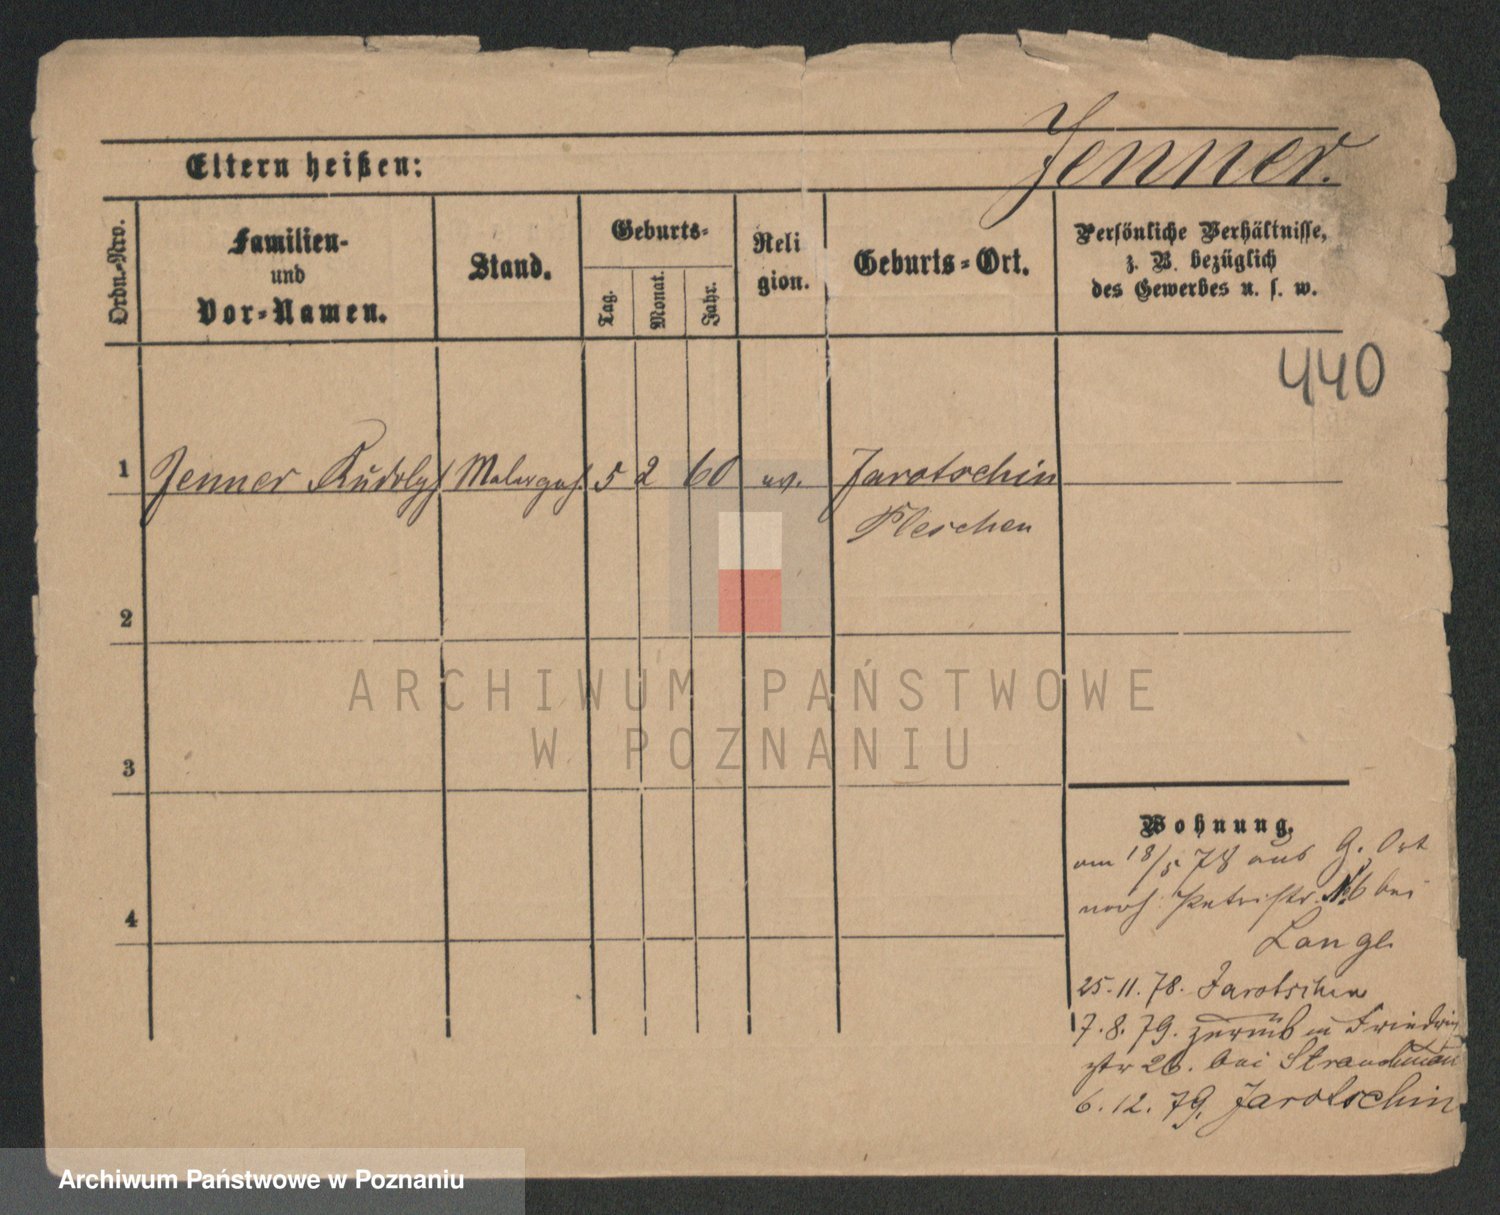 Jenner.
Eltern heißen:
Ordn.-Nro.
Familien-
und
Vor-Namen.
Stand.
Geburts-
Tag.
Monat.
Jahr.
Reli
gion.
Geburts-Ort.
Persönliche Verhältnisse,
z. B. bezüglich
des Gewerbes u. s. w.
440
1 Jenner Rudolph Malergeh. 5 2 60 ev. Jarotschin
Pleschen
2
3
4
Wohnung.
am 18/5 78 aus G. Ort
nach Petristr. No 6 bei
Lange
25.11.78. Jarotschin
7.8.79. zurück in Friedrich
str 26. bei
6.12.79. Jarotschin
ARCHIWUM PAŃSTWOWE
W POZNANIU
Archiwum Państwowe w Poznaniu